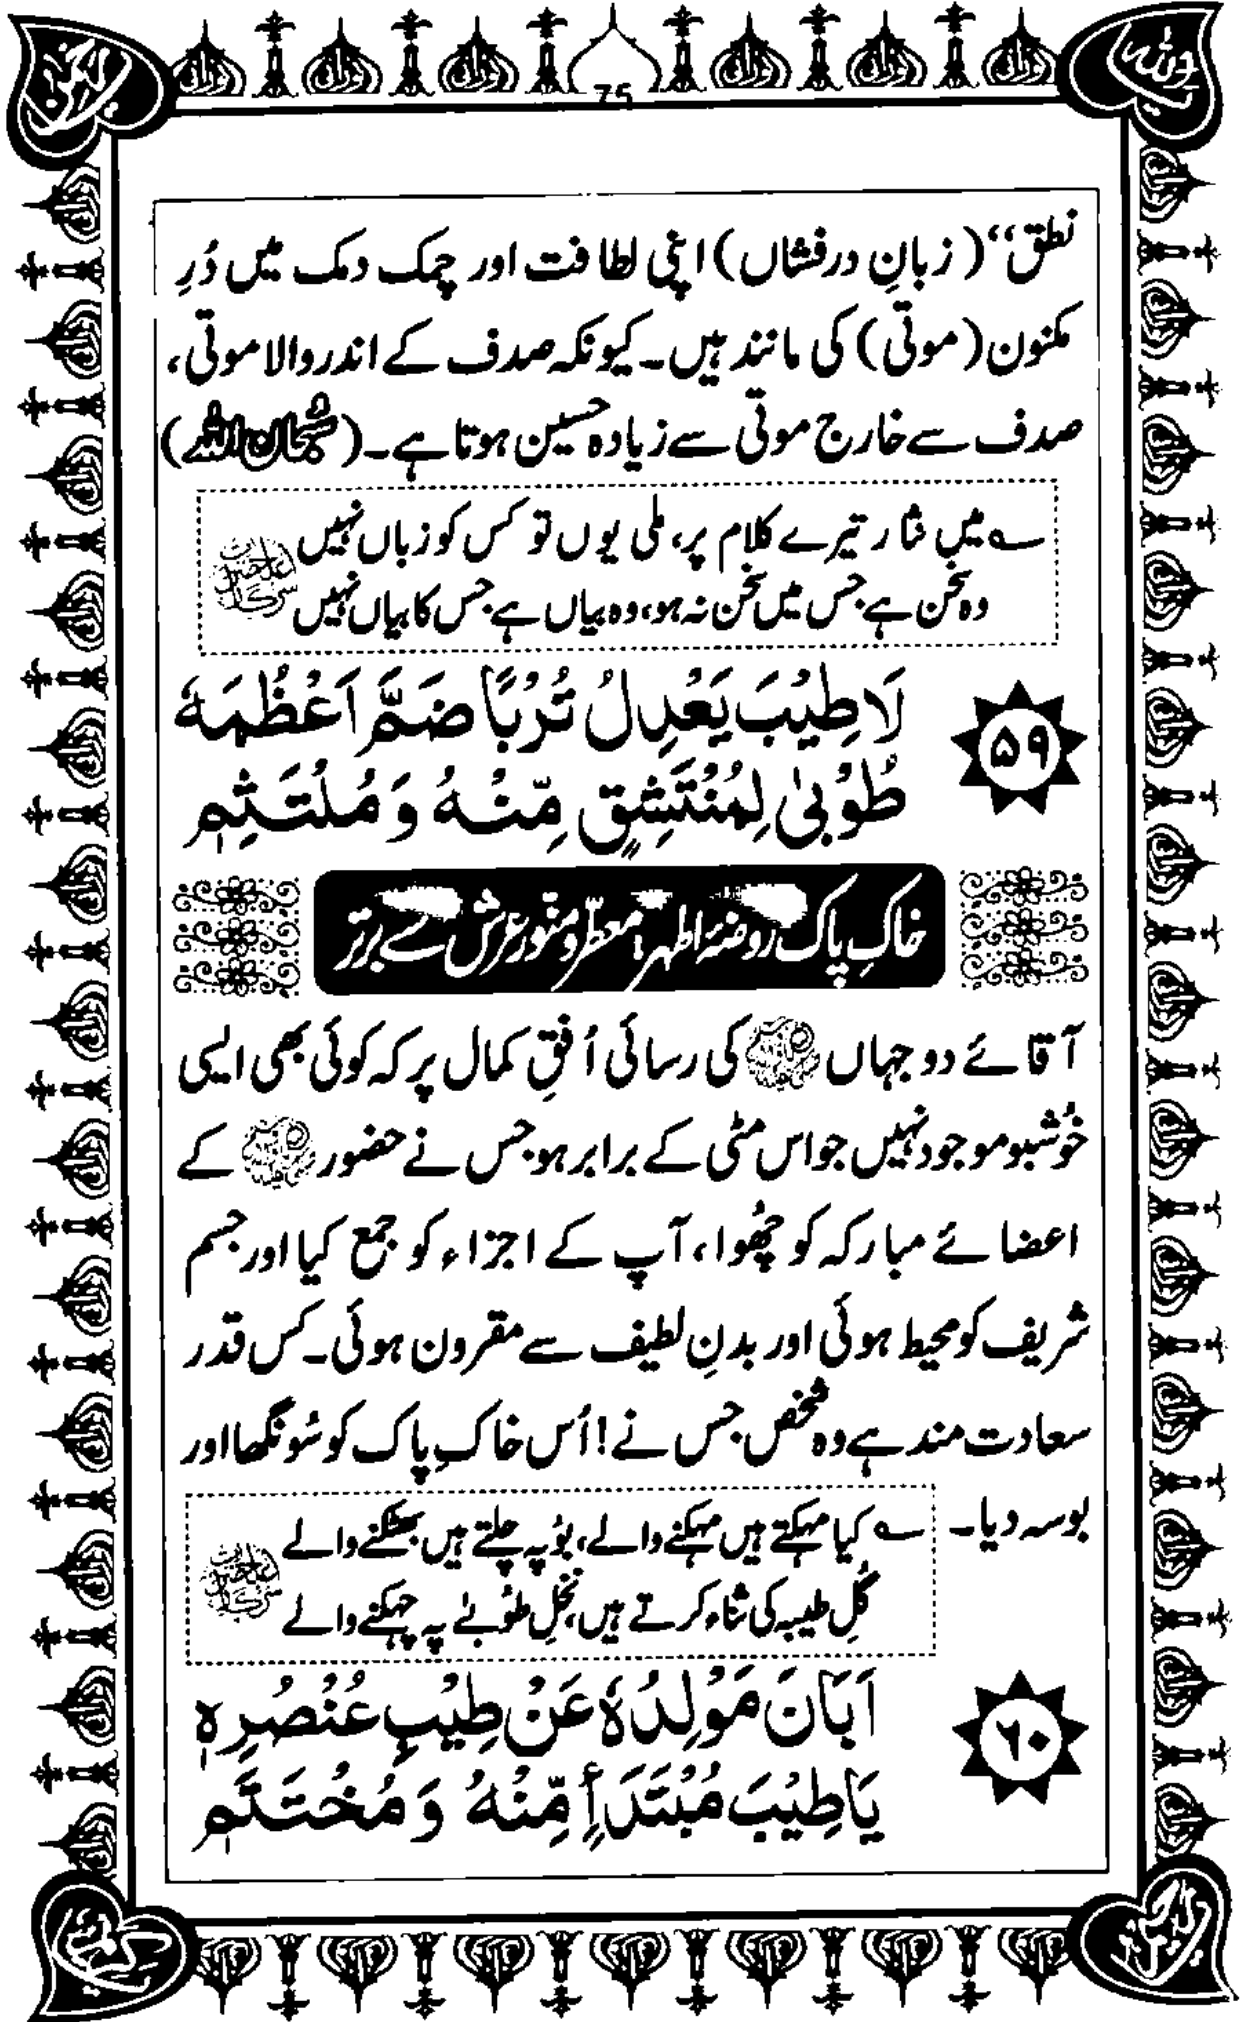 75
نطق‘‘ (زبانِ درفشاں) اپنی لطافت اور چمک دمک میں دُرِ
مکنون (موتی) کی مانند ہیں۔ کیونکہ صدف کے اندر والا موتی،
صدف سے خارج موتی سے زیادہ حسین ہوتا ہے۔ (سُبحان اللہ)
؎ میں نثار تیرے کلام پر، ملی یوں تو کس کو زباں نہیں
وہ سخن ہے جس میں سخن نہ ہو، وہ بیاں ہے جس کا بیاں نہیں
۵۹
لَا طِيْبَ يَعْدِلُ تُرْبًا ضَمَّ اَعْظُمَهٗ
طُوْبٰى لِمُنْتَشِقٍ مِّنْهُ وَ مُلْتَثِمٖ
خاکِ پاک روضۂ اطہر، معطّر و منور عرش سے برتر
آقائے دو جہاں ﷺ کی رسائی اُفقِ کمال پر کہ کوئی بھی ایسی
خُوشبو موجود نہیں جو اس مٹی کے برابر ہو جس نے حضور ﷺ کے
اعضائے مبارکہ کو چُھوا، آپ کے اجزاء کو جمع کیا اور جسم
شریف کو محیط ہوئی اور بدنِ لطیف سے مقرون ہوئی۔ کس قدر
سعادت مند ہے وہ شخص جس نے! اُس خاکِ پاک کو سُونگھا اور
بوسہ دیا۔
؎ کیا مہکتے ہیں مہکنے والے، بوُ پہ چلتے ہیں بھٹکنے والے
گُلِ طیبہ کی ثناء کرتے ہیں، نخلِ طوُبےٰ پہ چہکنے والے
۶۰
اَبَانَ مَوْلِدُهٗ عَنْ طِيْبِ عُنْصُرِهٖ
يَا طِيْبَ مُبْتَدَأٍ مِّنْهُ وَ مُخْتَتَمٖ